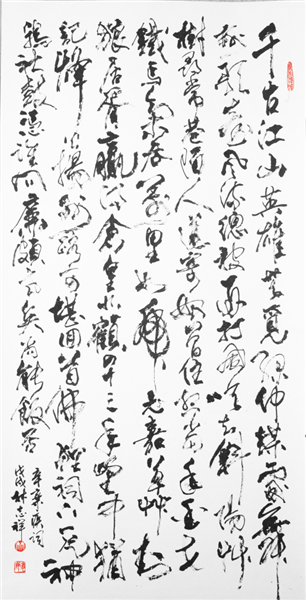 千古江山英雄無覓孫仲謀處舞
榭歌臺風流總被雨打風吹去斜陽艸
樹尋常巷陌人道寄奴曾住想當年金戈
鐵馬氣吞萬里如虎元嘉草艸封
狼居胥贏得倉皇北顧四十三年望中猶
記烽火揚州路可堪回首佛貍祠下一片神
鴉社鼓憑誰問廉頗老矣尚能飯否
辛棄疾詞
戊戌林志祥